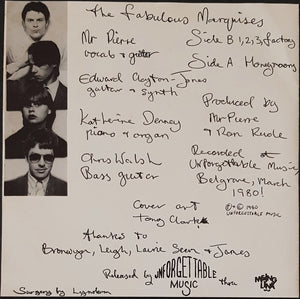 The Fabulous Marquises
Mr Pierre
vocals & guitar
Side B 1,2,3, factory
Side A Honeymoon
Edward Clayton-Jones
guitar & synth
Katherine Denney
piano & organ
Produced by
Mr Pierre
& Ron Rude
Chris Walsh
Bass guitar
Recorded at
Unforgettable Music,
Belgrave, March
1980!
Cover art
Tony Clark
© ℗ 1980
UNFORGETTABLE MUSIC
thanks to
Bronwyn, Leigh, Laurie, Sean & James
Released by UNFORGETTABLE
MUSIC thru
Surgery by